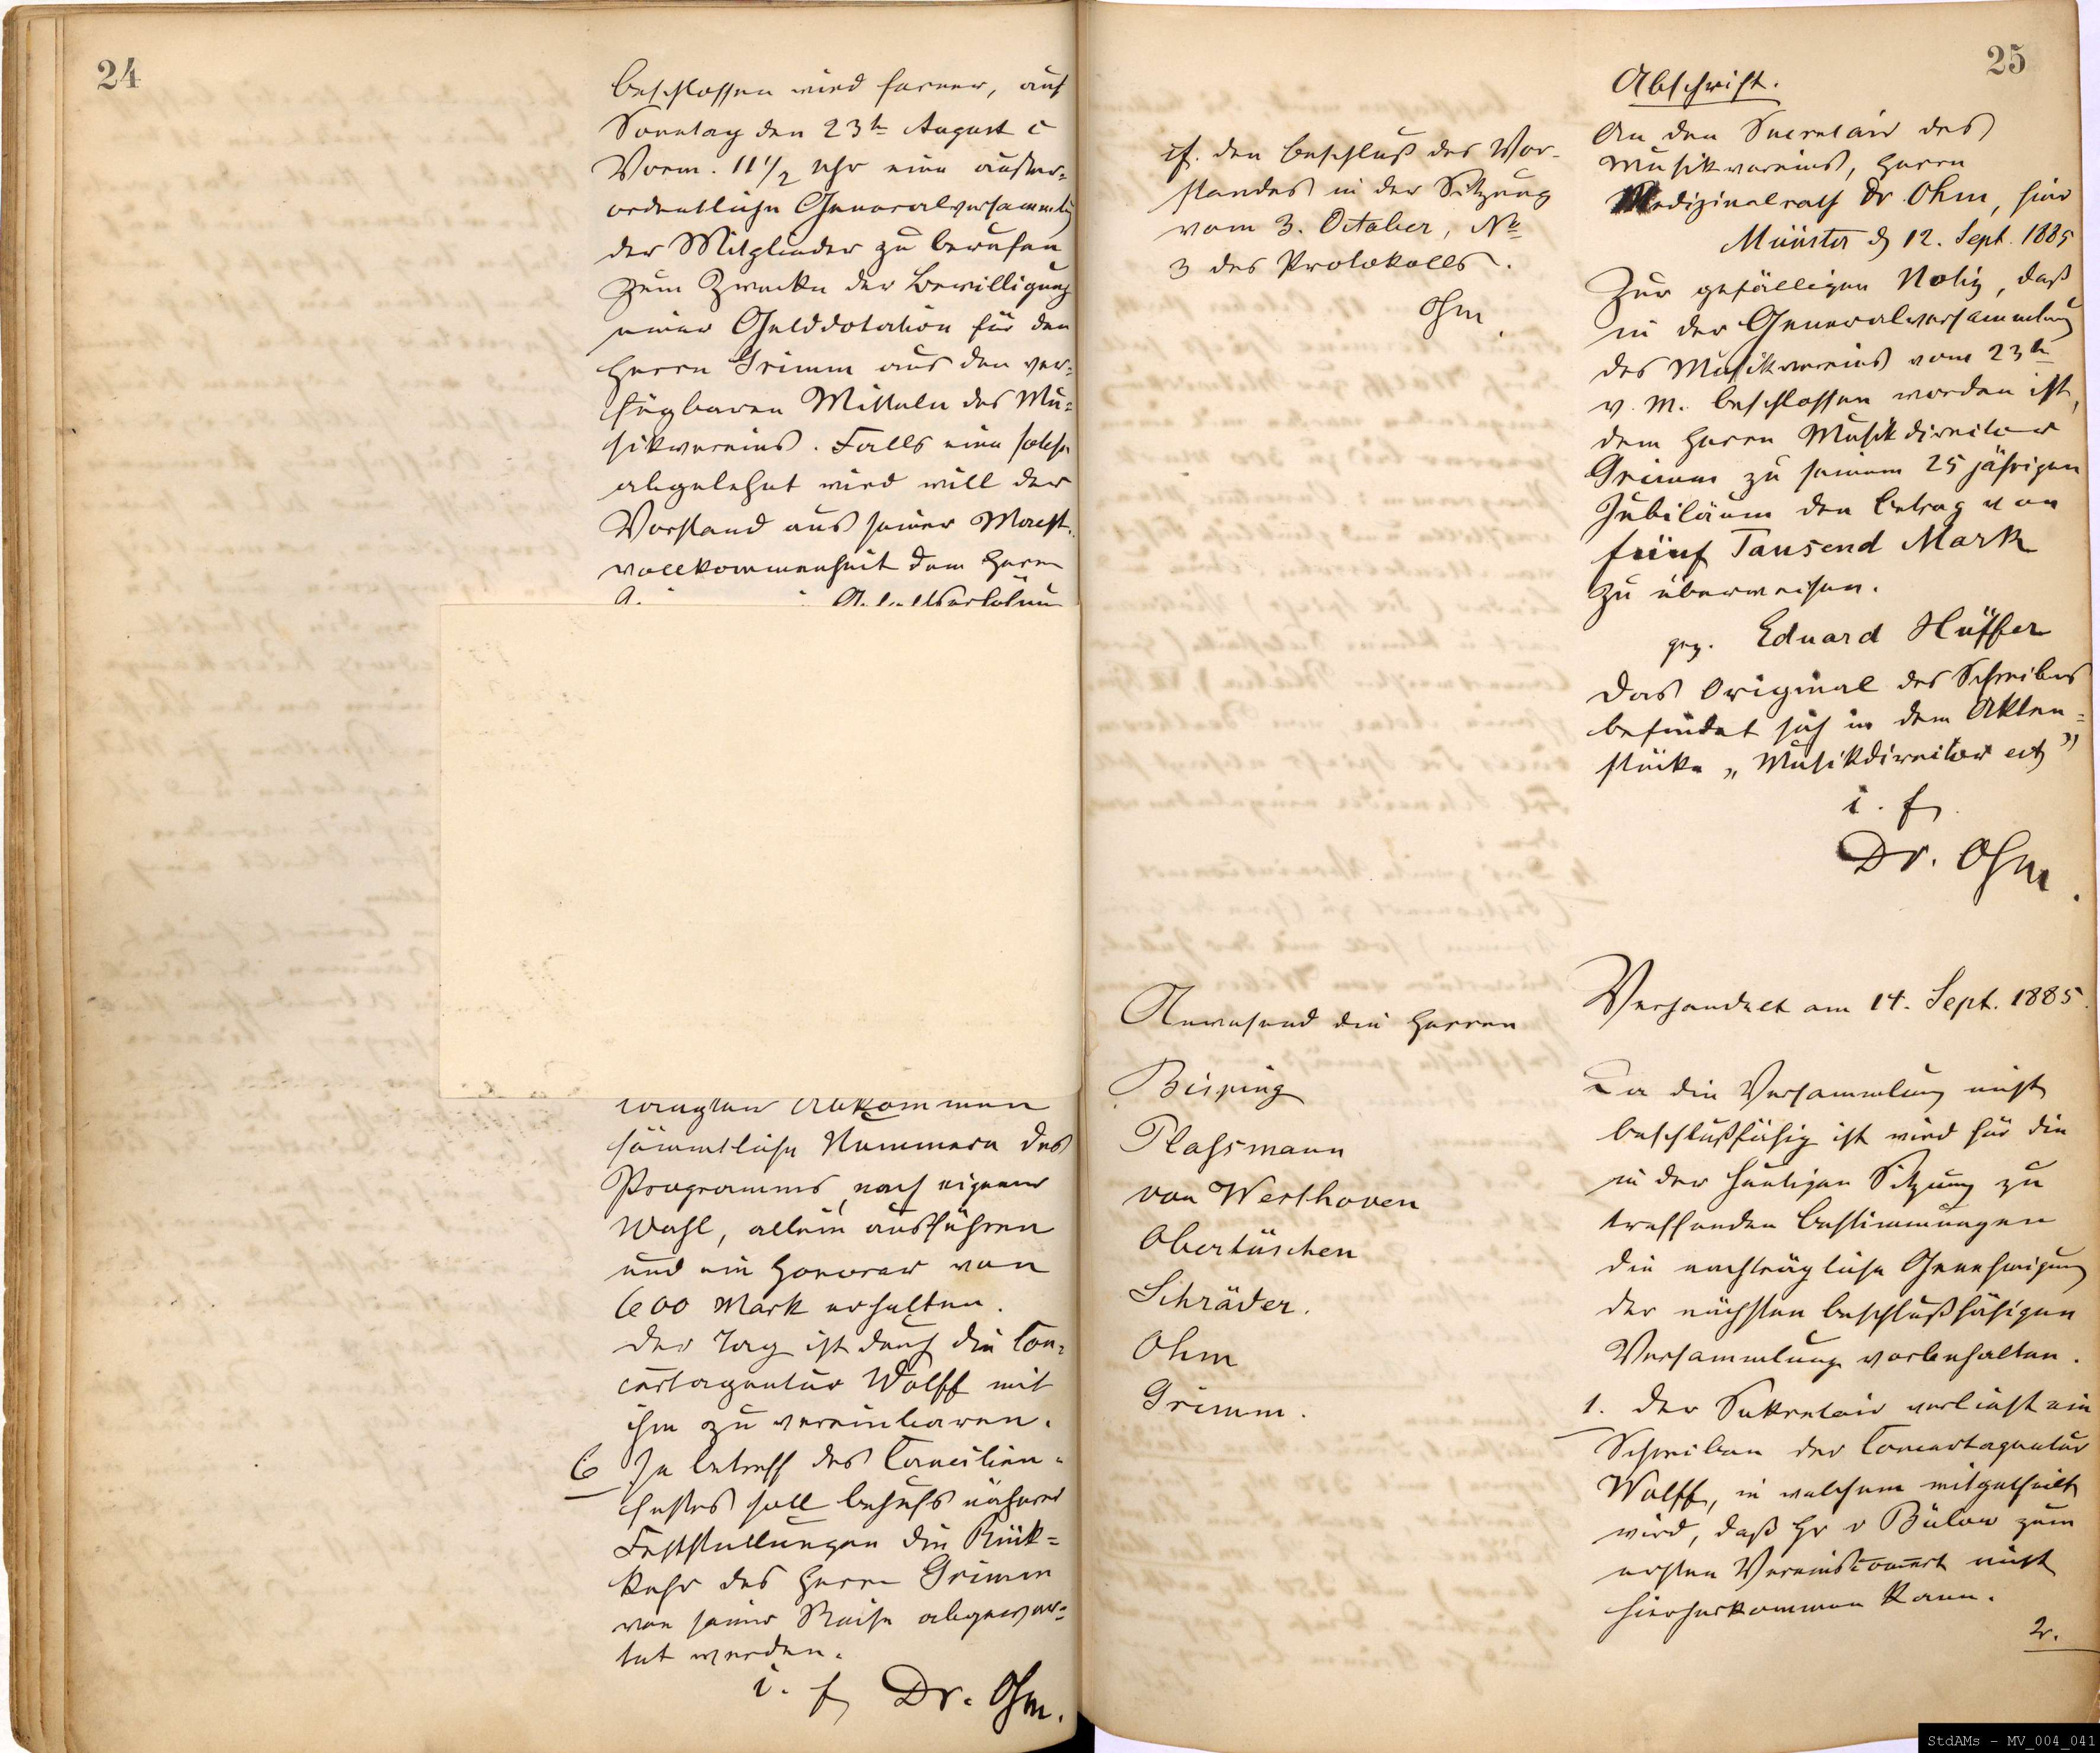 24
beschlossen wird ferner, auf
Sonntag den 23t August c
Vorm. 11 1/2 Uhr eine außer-
ordentliche Generalversammlg
der Mitglieder zu berufen
zum Zwecke der Bewilligung
einer Gelddotation für den
Herrn Grimm aus den ver-
fügbaren Mitteln des Mu-
sikvereins. Falls eine solche
abgelehnt wird will der
Vorstand aus seiner Macht-
vollkommenheit dem Herrn
Abkommen
sämmtliche Nummern des
Programms, nach eigener
Wahl, allein ausführen
und ein Honorar von
600 Mark erhalten.
Der Tag ist durch die Con-
certagentur Wolff mit
ihm zu vereinbaren.
6 In betreff des Caecilien-
festes soll behufs näherer
Feststellungen die Rück-
kehr des Herrn Grimm
von seiner Reise abgewar-
tet werden.
i. f. Dr. Ohm.
25
cf. den Beschluß des Vor-
standes in der Sitzung
vom 3. October, No
3 des Protokolls.
Ohm.
Abschrift.
An den Secretair des
Musikvereins, Herrn
Medizinalrath Dr Ohm, hier
Münster d 12. Sept. 1885
Zur gefälligen Notiz, daß
in der Generalversammlung
des Musikvereins vom 23t
v. M. beschlossen worden ist,
dem Herrn Musikdirector
Grimm zu seinem 25 jährigen
Jubiläum den Betrag von
fünf Tausend Mark
zu überweisen.
gez. Eduard Hüffer
Das Original des Schreibens
befindet sich in dem Akten-
stücke „Musikdirector ect"
i. f.
Dr. Ohm.
Verhandelt am 14. Sept. 1885.
Anwesend die Herren
Bisping
Plassmann
von Westhoven
Obertüschen
Schräder.
Ohm
Grimm.
Da die Versammlung nicht
beschlußfähig ist wird für die
in der heutigen Sitzung zu
treffenden Bestimmungen
die nachträgliche Genehmigung
der nächsten beschlußfähigen
Versammlung vorbehalten.
1. Der Sekretair verliest ein
Schreiben der Concertagentur
Wolff, in welchem mitgetheilt
wird, daß Hr v Bülow zum
ersten Vereinsconcert nicht
hierherkommen kann.
2.
StdAMs - MV_004_041